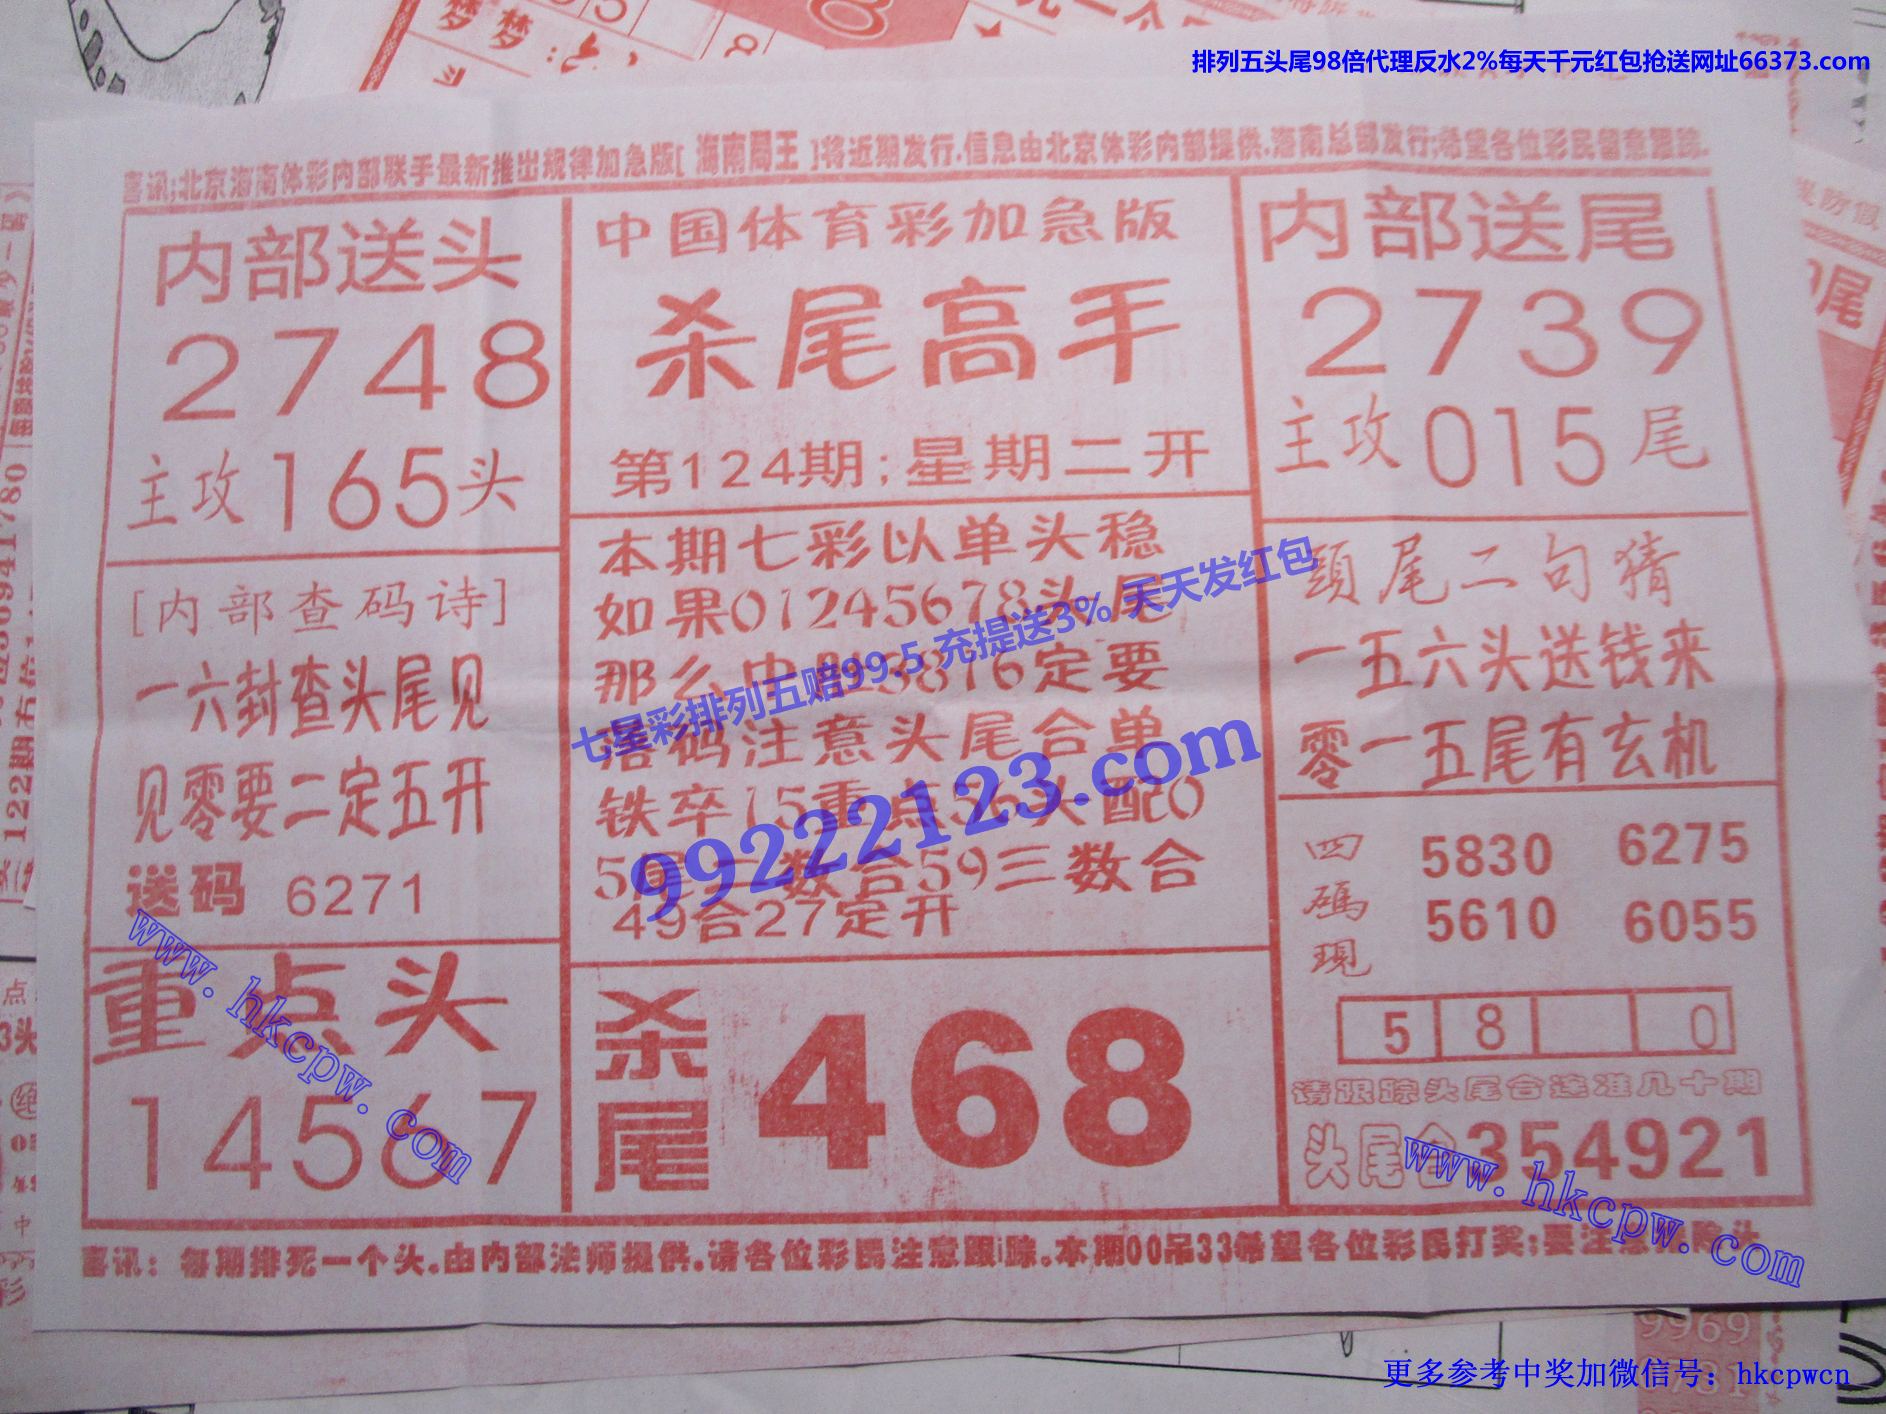 排列五头尾98倍代理反水2%每天千元红包抢送网址66373.com
喜讯;北京海南体彩内部联手最新推出规律加急版[ 海南局王 ]将近期发行.信息由北京体彩内部提供.海南总部发行;希望各位彩民留意跟踪.
内部送头
2748
主攻165头
[内部查码诗]
一六封查头尾见
见零要二定五开
送码 6271
重点头
14567
中国体育彩加急版
杀尾高手
第124期;星期二开
本期七彩以单头稳
如果01245678头尾
那么中肚3816定要
落码注意头尾合单
铁卒15重点56头配0
5尾二数合59三数合
49合27定开
杀尾 468
内部送尾
2739
主攻015尾
頭尾二句猜
一五六头送钱来
零一五尾有玄机
四碼現
5830 6275
5610 6055
5 8 0
请跟踪头尾合连准几十期
头尾合354921
喜讯: 每期排死一个头.由内部法师提供.请各位彩民注意跟踪.本期00吊33希望各位彩民打奖;要注意排除头
七星彩排列五赔99.5 充提送3% 天天发红包
99222123.com
www.hkcpw.com
www.hkcpw.com
更多参考中奖加微信号：hkcpwcn